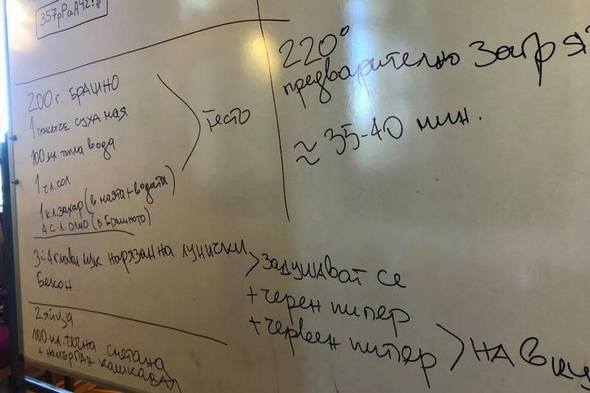 357pPaA42!#
200 г. БРАШНО
1 пакетче суха мая
100 мл. топла вода
1 ч.л. сол
1 к.л. захар (в маята + водата)
4 с.л. олио (в брашното)
тесто
3-4 глави лук нарязан на лунички
Бекон
задушават се
+ черен пипер
+ червен пипер
на вку
2 яйца
100 мл. течна сметана
+ настърган кашкавал
220°
предварително загря
≈ 35-40 мин.